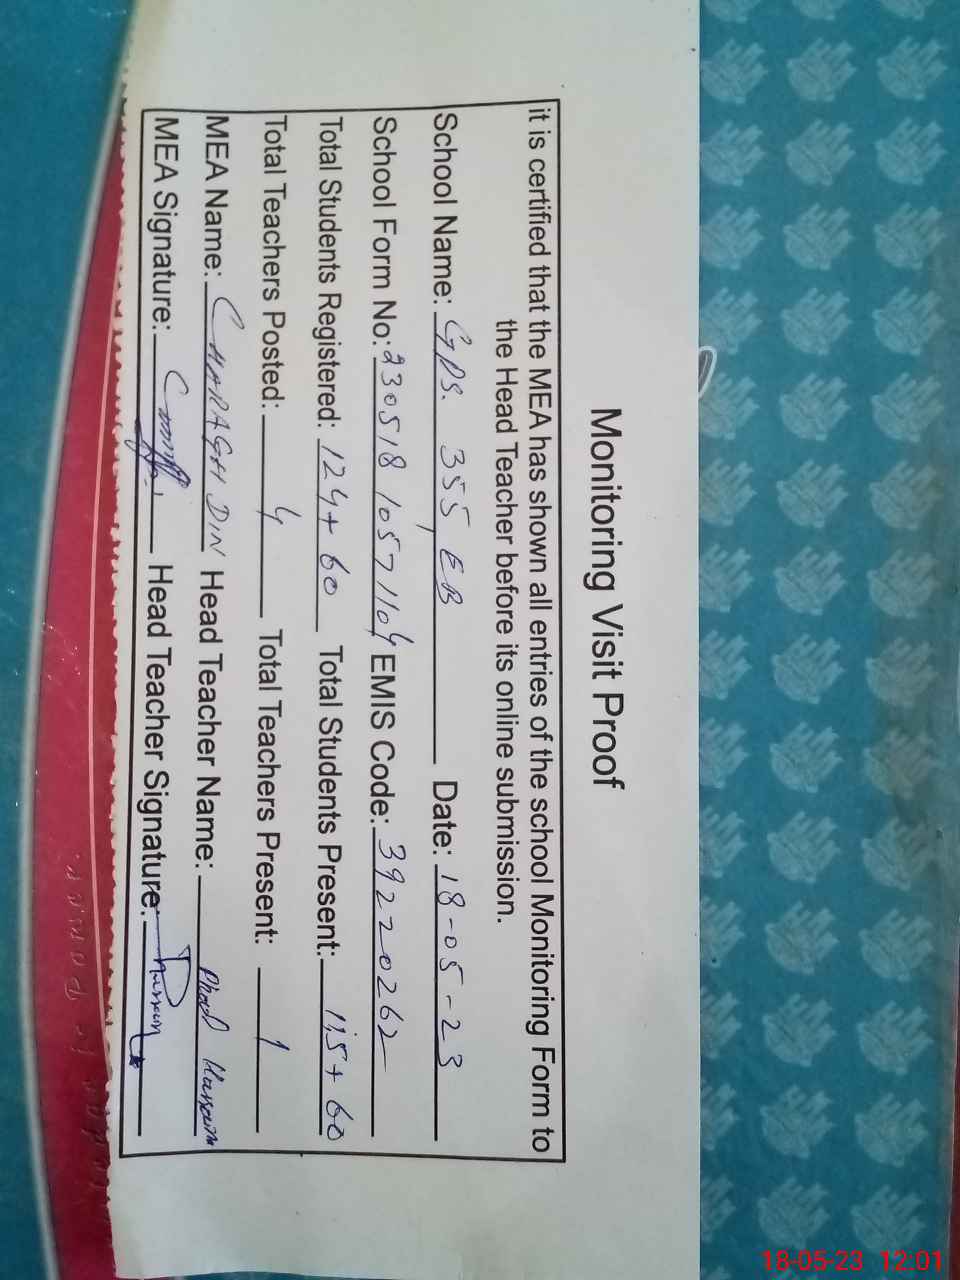 Monitoring Visit Proof
it is certified that the MEA has shown all entries of the school Monitoring Form to
the Head Teacher before its online submission.
School Name: GPS. 355, EB Date: 18-05-23
School Form No: 230518 10571104 EMIS Code: 39220262
Total Students Registered: 124+60 Total Students Present: 115+60
Total Teachers Posted: 4 Total Teachers Present:
MEA Name: CHARAGH DIN Head Teacher Name: Hussain
MEA Signature: Head Teacher Signature: Hussain
18-05-23 12:01